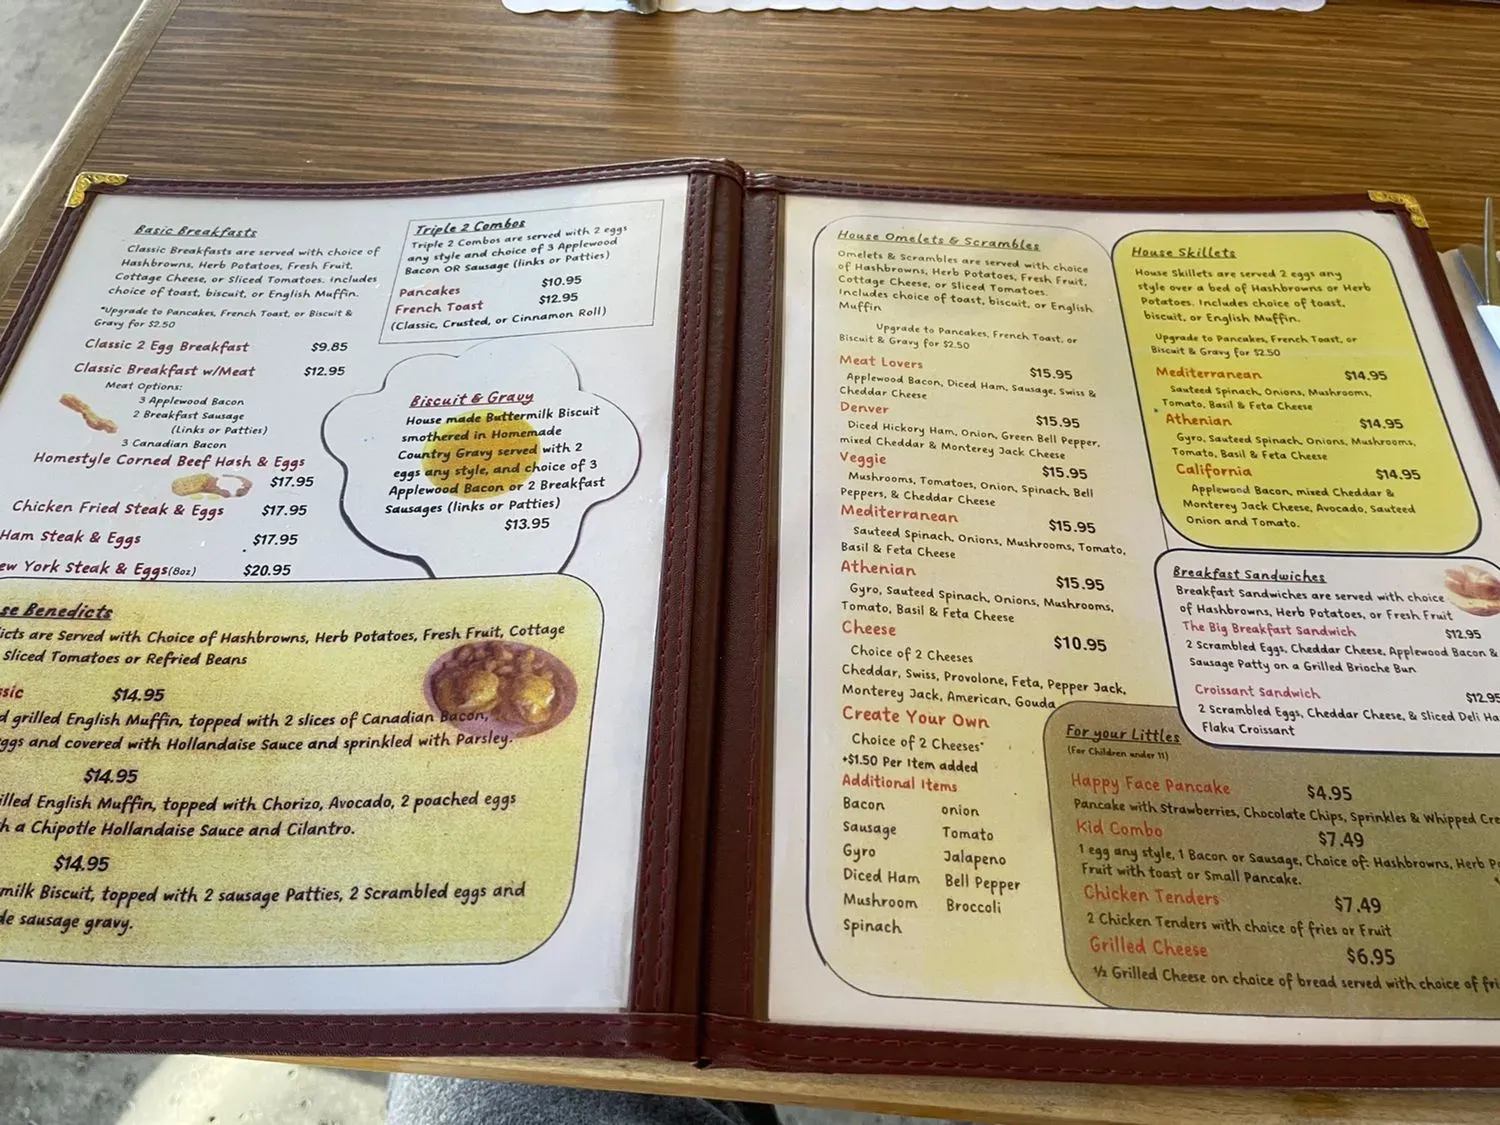 Basic Breakfasts
Classic Breakfasts are served with choice of
Hashbrowns, Herb Potatoes, Fresh Fruit,
Cottage Cheese, or Sliced Tomatoes. Includes
choice of toast, biscuit, or English Muffin.
*Upgrade to Pancakes, French Toast, or Biscuit &
Gravy for $2.50
Classic 2 Egg Breakfast $9.85
Classic Breakfast w/Meat $12.95
Meat Options:
3 Applewood Bacon
2 Breakfast Sausage
(Links or Patties)
3 Canadian Bacon
Homestyle Corned Beef Hash & Eggs
$17.95
Chicken Fried Steak & Eggs $17.95
Ham Steak & Eggs $17.95
ew York Steak & Eggs(8oz) $20.95
Triple 2 Combos
Triple 2 Combos are served with 2 eggs
any style and choice of 3 Applewood
Bacon OR Sausage (links or Patties)
Pancakes $10.95
French Toast $12.95
(Classic, Crusted, or Cinnamon Roll)
Biscuit & Gravy
House made Buttermilk Biscuit
smothered in Homemade
Country Gravy served with 2
eggs any style, and choice of 3
Applewood Bacon or 2 Breakfast
Sausages (links or Patties)
$13.95
se Benedicts
icts are Served with Choice of Hashbrowns, Herb Potatoes, Fresh Fruit, Cottage
Sliced Tomatoes or Refried Beans
sic $14.95
d grilled English Muffin, topped with 2 slices of Canadian Bacon,
ggs and covered with Hollandaise Sauce and sprinkled with Parsley.
$14.95
illed English Muffin, topped with Chorizo, Avocado, 2 poached eggs
h a Chipotle Hollandaise Sauce and Cilantro.
$14.95
milk Biscuit, topped with 2 sausage Patties, 2 Scrambled eggs and
de sausage gravy.
House Omelets & Scrambles
Omelets & Scrambles are served with choice
of Hashbrowns, Herb Potatoes, Fresh Fruit,
Cottage Cheese, or Sliced Tomatoes.
Includes choice of toast, biscuit, or English
Muffin
Upgrade to Pancakes, French Toast, or
Biscuit & Gravy for $2.50
Meat Lovers $15.95
Applewood Bacon, Diced Ham, Sausage, Swiss &
Cheddar Cheese
Denver $15.95
Diced Hickory Ham, Onion, Green Bell Pepper,
mixed Cheddar & Monterey Jack Cheese
Veggie $15.95
Mushrooms, Tomatoes, Onion, Spinach, Bell
Peppers, & Cheddar Cheese
Mediterranean $15.95
Sauteed Spinach, Onions, Mushrooms, Tomato,
Basil & Feta Cheese
Athenian $15.95
Gyro, Sauteed Spinach, Onions, Mushrooms,
Tomato, Basil & Feta Cheese
Cheese $10.95
Choice of 2 Cheeses
Cheddar, Swiss, Provolone, Feta, Pepper Jack,
Monterey Jack, American, Gouda
Create Your Own
Choice of 2 Cheeses*
+$1.50 Per Item added
Additional Items
Bacon onion
Sausage Tomato
Gyro Jalapeno
Diced Ham Bell Pepper
Mushroom Broccoli
Spinach
House Skillets
House Skillets are served 2 eggs any
style over a bed of Hashbrowns or Herb
Potatoes. Includes choice of toast,
biscuit, or English Muffin.
Upgrade to Pancakes, French Toast, or
Biscuit & Gravy for $2.50
Mediterranean $14.95
Sauteed Spinach, Onions, Mushrooms,
Tomato, Basil & Feta Cheese
Athenian $14.95
Gyro, Sauteed Spinach, Onions, Mushrooms,
Tomato, Basil & Feta Cheese
California $14.95
Applewood Bacon, mixed Cheddar &
Monterey Jack Cheese, Avocado, Sauteed
Onion and Tomato.
Breakfast Sandwiches
Breakfast Sandwiches are served with choice
of Hashbrowns, Herb Potatoes, or Fresh Fruit
The Big Breakfast Sandwich $12.95
2 Scrambled Eggs, Cheddar Cheese, Applewood Bacon &
Sausage Patty on a Grilled Brioche Bun
Croissant Sandwich $12.95
2 Scrambled Eggs, Cheddar Cheese, & Sliced Deli Ha
Flaku Croissant
For your Littles
(For Children under 11)
Happy Face Pancake $4.95
Pancake with Strawberries, Chocolate Chips, Sprinkles & Whipped Cre
Kid Combo $7.49
1 egg any style, 1 Bacon or Sausage, Choice of: Hashbrowns, Herb Po
Fruit with toast or Small Pancake.
Chicken Tenders $7.49
2 Chicken Tenders with choice of fries or Fruit
Grilled Cheese $6.95
½ Grilled Cheese on choice of bread served with choice of fri